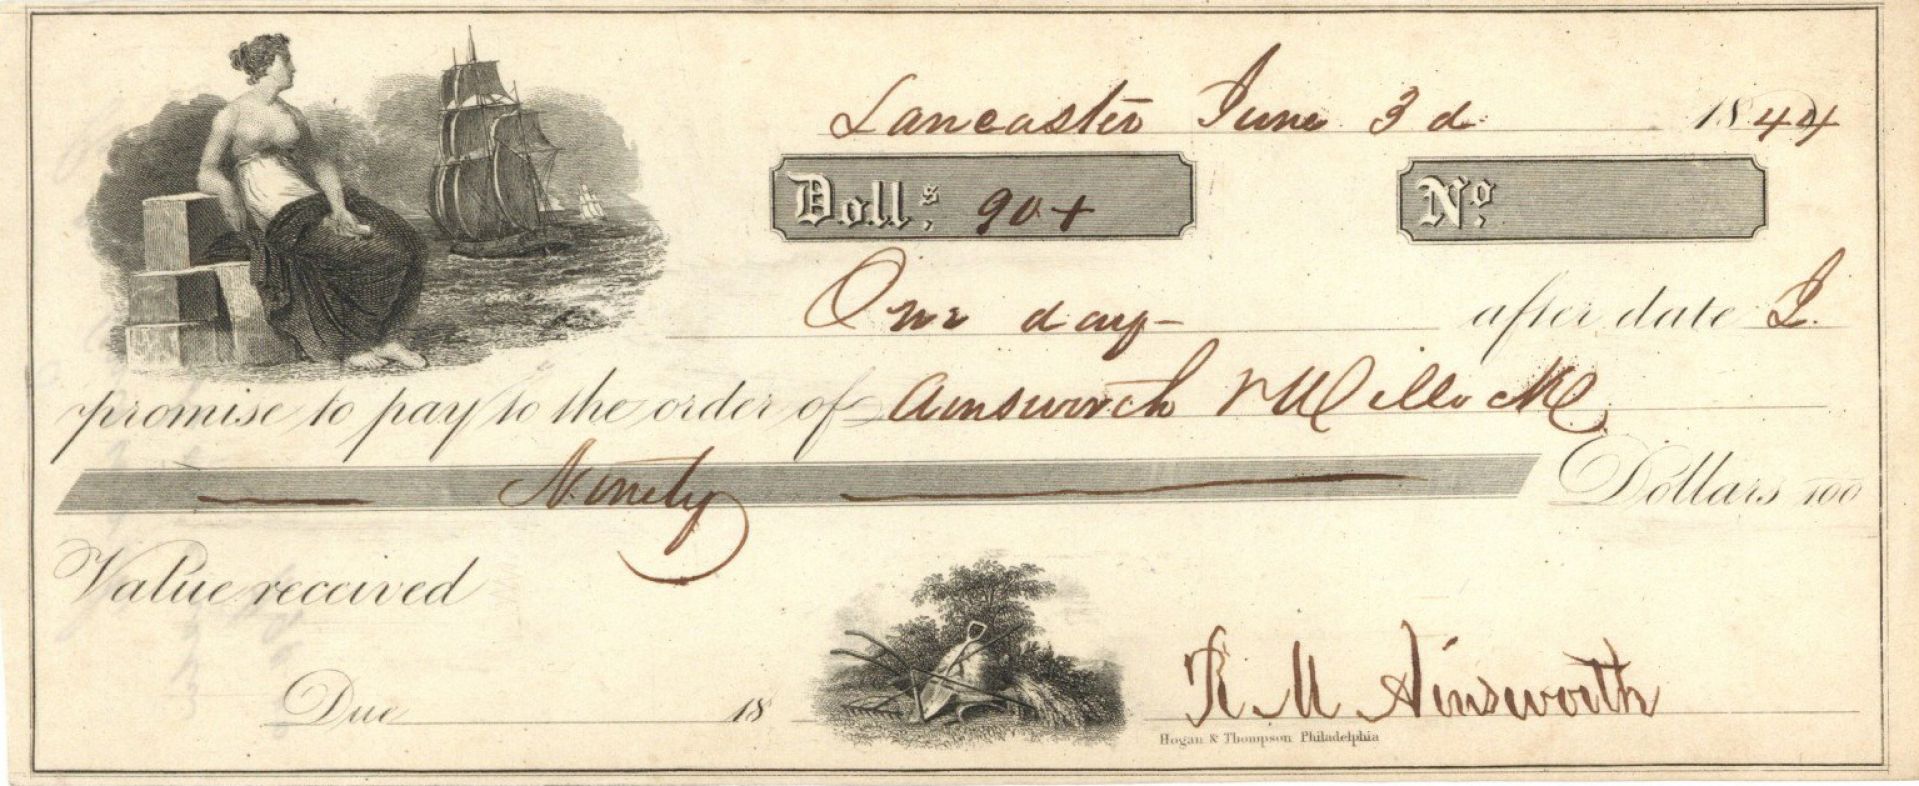 Lancaster June 3d 1844
Doll.s: 90+ No:
One day after date I
promise to pay to the order of Ainsworth
Ninety Dollars 100
Value received
Due 18 R M Ainsworth
Hogan & Thompson Philadelphia